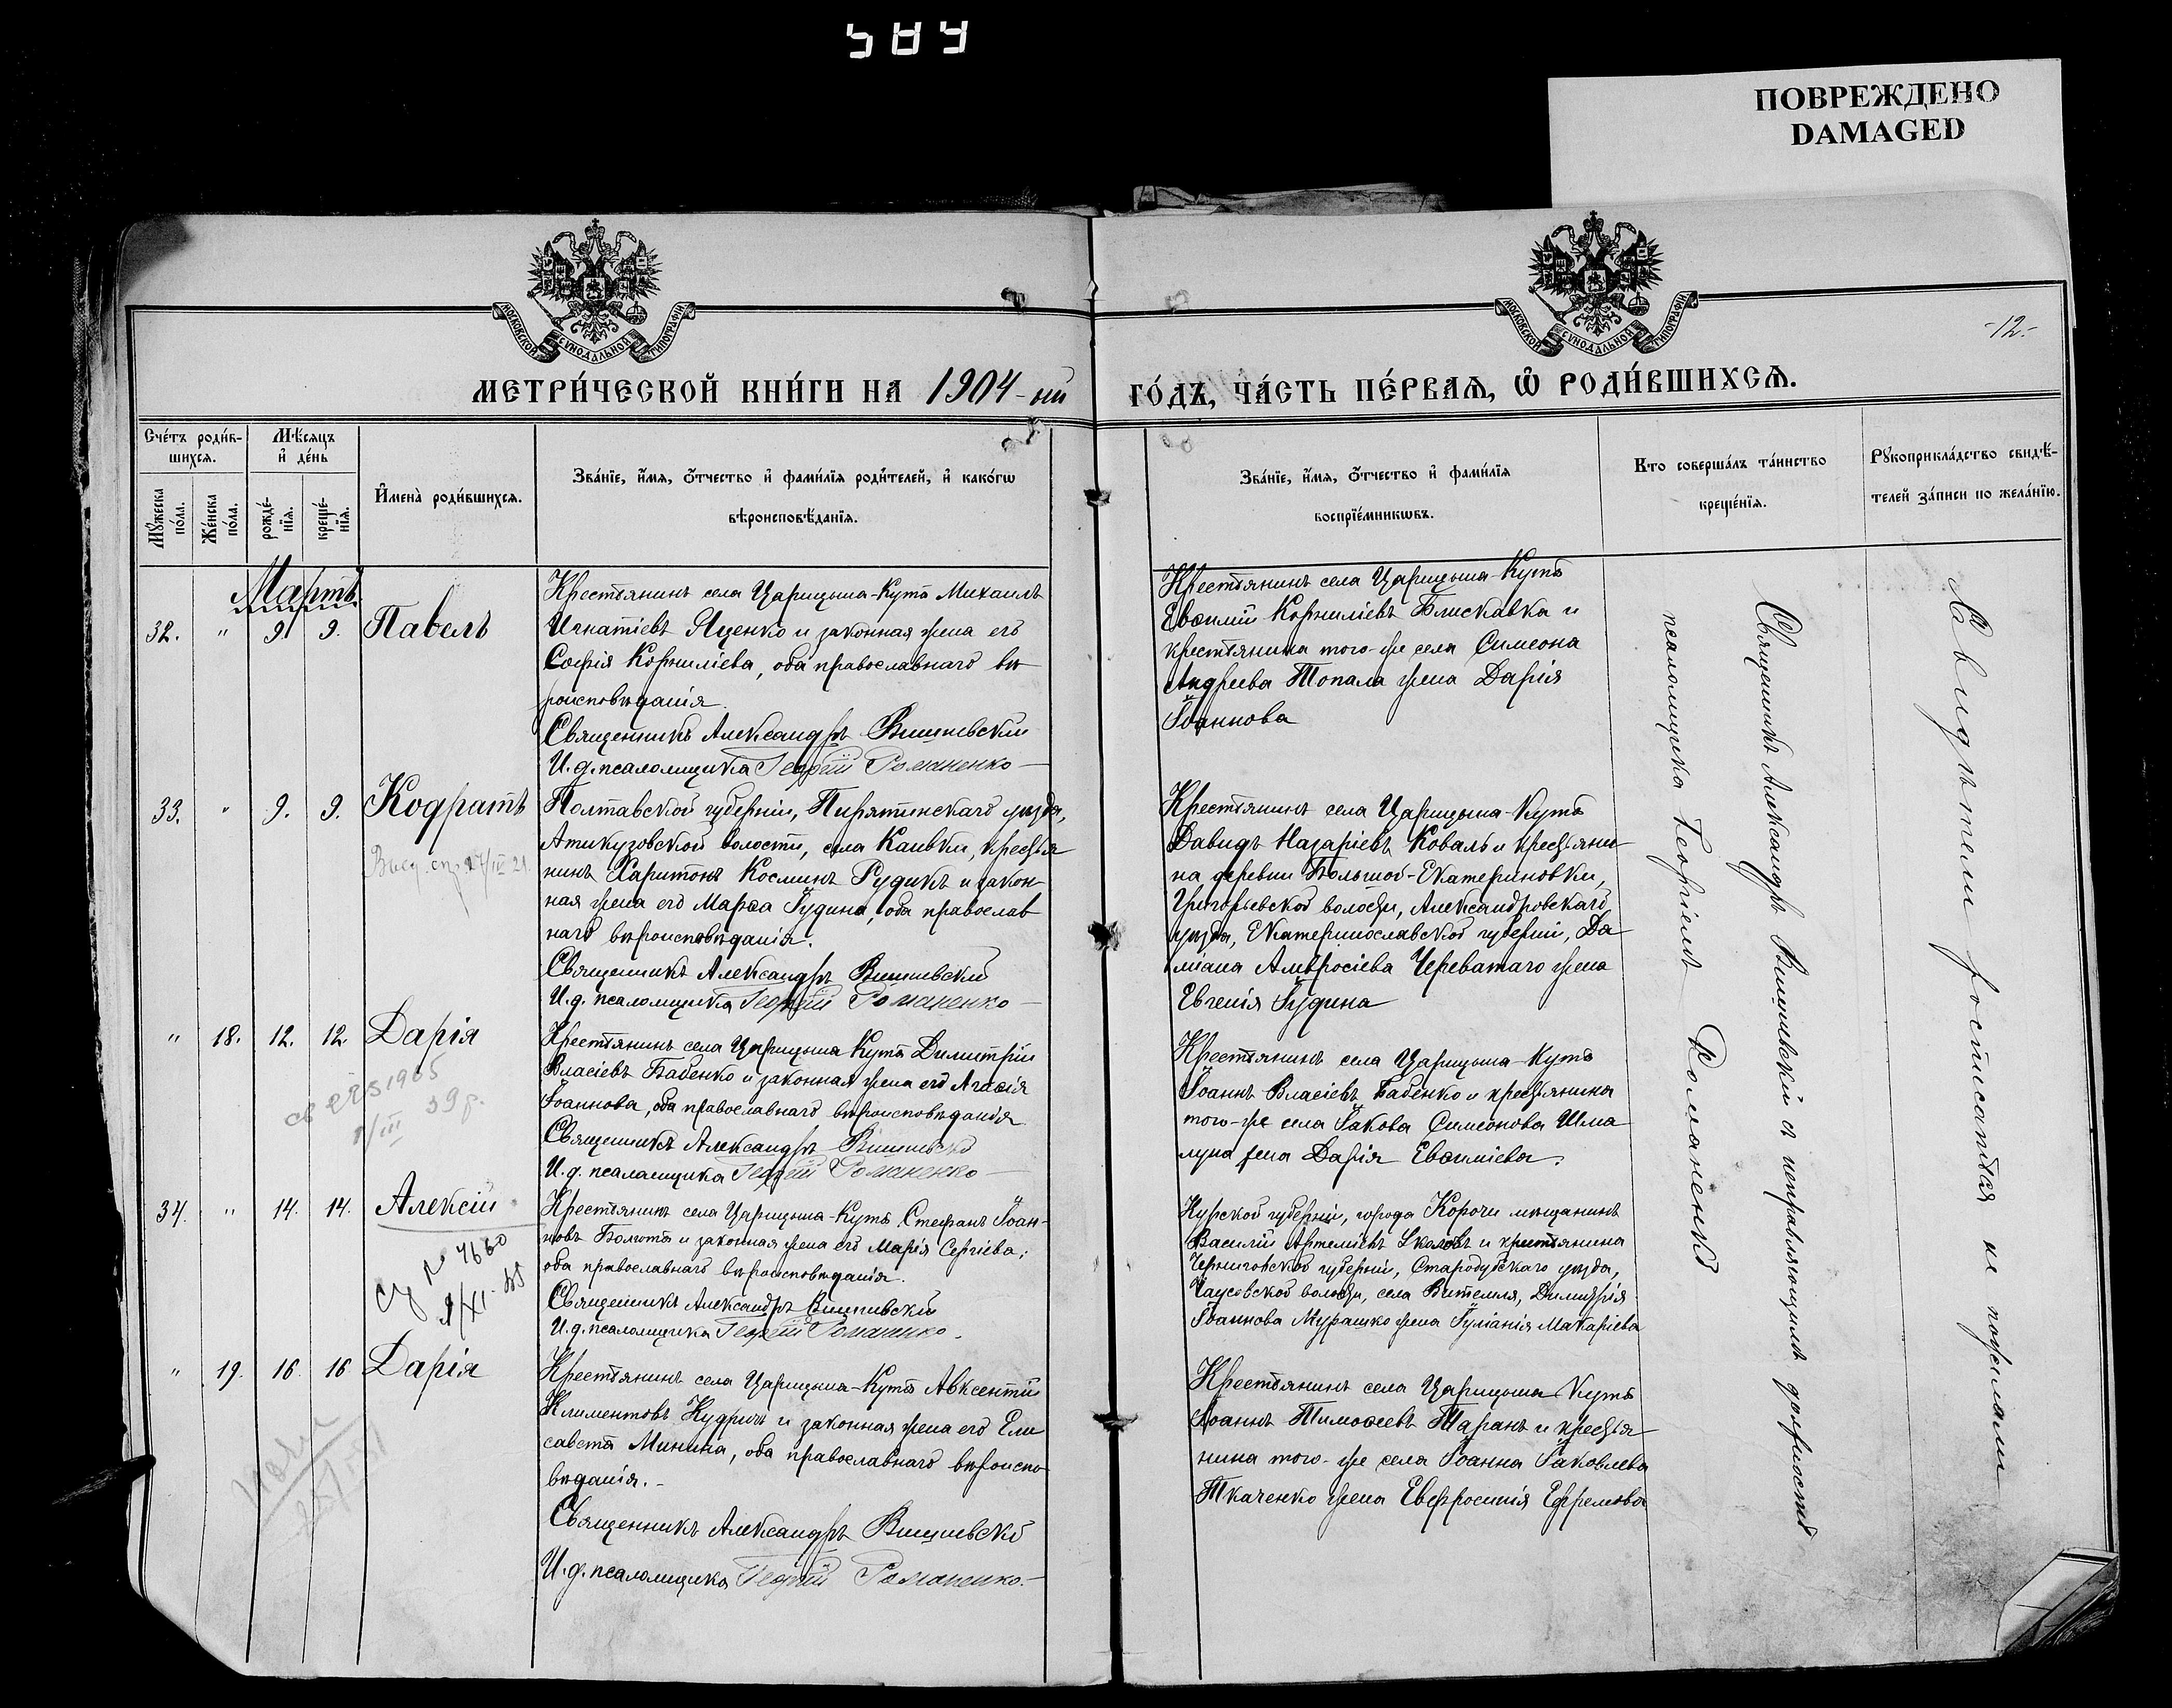 ПОВРЕЖДЕНО
DAMAGED
МОСКОВСКОЙ СѴНОДАЛЬНОЙ ТИПОГРАФІИ
МОСКОВСКОЙ СѴНОДАЛЬНОЙ ТИПОГРАФІИ
-12.-
МЕТРИ́ЧЕСКОЙ КНИ́ГИ НА 1904-ый
ГО́ДЪ, ЧА́СТЬ ПЕ́РВАѦ, Ѿ РОДИ́ВШИХСѦ.
Сче́тъ роди́в-
шихсѧ.
Мѣ́сяцъ
и҆ де́нь
Мꙋ́жеска по́ла.
Же́нска по́ла.
рожде́-нїѧ.
креще́-нїѧ.
И҆мена̀ роди́вшихсѧ.
Зва́нїе, и҆́мѧ, ѻ҆́тчество и҆ фамѝлїѧ роди́телей, и҆ како́гѡ
вѣроисповѣ́данїѧ.
Зва́нїе, и҆́мѧ, ѻ҆́тчество и҆ фами́лїѧ
воспрїе́мникѡвъ.
Кто соверша́лъ та́инство
креще́нїѧ.
Рꙋкоприкла́дство свидѣ́-
телей за́писи по жела́нїю.
Мартъ
32. " 9. 9. Павелъ
Крестьянинъ села Царицына-Кута Михаилъ
Игнатіевъ Яценко и законная жена его
Софія Корниліева, оба православнаго вѣ
роисповѣданія.
Священникъ Александръ Вишневскій
И.д. псаломщика Георгій Романенко
Крестьянинъ села Царицына-Кута
Евѳимій Корниліевъ Блискавка и
крестьянина того-же села Симеона
Андреева Топала жена Дарія
Іоаннова
33. " 9. 9. Кодратъ
Полтавской губерніи, Пирятинскаго уѣзда,
волости, села Каивки, крестья
нинъ Харитонъ Косминъ Рудикъ и закон
ная жена его Марѳа Іудина, оба православ
наго вѣроисповѣданія.
Священникъ Александръ Вишневскій
И.д. псаломщика Георгій Романенко
Крестьянинъ села Царицына-Кута
Давидъ Назаріевъ Коваль и крестьяни-
на деревни Большой-Екатериновки,
Григорьевской волости, Александровскаго
уѣзда, Екатеринославской губерніи, Да
міана Амвросіева Череватаго жена
Евгенія Іудина
" 18. 12. 12. Дарія
Крестьянинъ села Царицына Кута Димитрій
Власіевъ Бабенко и законная жена его Агаѳія
Іоаннова, оба православнаго вѣроисповѣданія
Священникъ Александръ Вишневскій
И.д. псаломщика Георгій Романенко
Крестьянинъ села Царицына-Кута
Іоаннъ Власіевъ Бабенко и крестьянина
того-же села Іакова Симеонова Шма
луна жена Дарія Евѳиміева.
34. " 14. 14. Алексій
№ 4660
Крестьянинъ села Царицына-Кута Стефанъ Іоан-
новъ Болюта и законная жена его Марія Сергіева,
оба православнаго вѣроисповѣданія.
Священникъ Александръ Вишневскій
И.д. псаломщика Георгій Романенко.
Курской губерніи, города Корочи мѣщанинъ
Василій Артеміевъ и крестьянина
Черниговской губерніи, Стародубскаго уѣзда,
волости, села Витемля, Димитрія
Іоаннова Мурашко жена Іуліанія Макаріева
" 19. 16. 16 Дарія
Крестьянинъ села Царицына-Кута Авксентій
Климентовъ Кудричъ и законная жена его Ели
савета Минина, оба православнаго вѣроиспо
вѣданія.-
Священникъ Александръ Вишневскій
И.д. псаломщика Георгій Романенко.-
Крестьянинъ села Царицына Кута
Іоаннъ Тимоѳеевъ Таранъ и крестья
нина того-же села Іоанна Іаковлева
Ткаченко жена Евфросинія Ефремова
Священникъ Александръ Вишневскій съ исправляющимъ должность
псаломщика Георгіемъ Романенко
Свидѣтели росписаться не пожелали